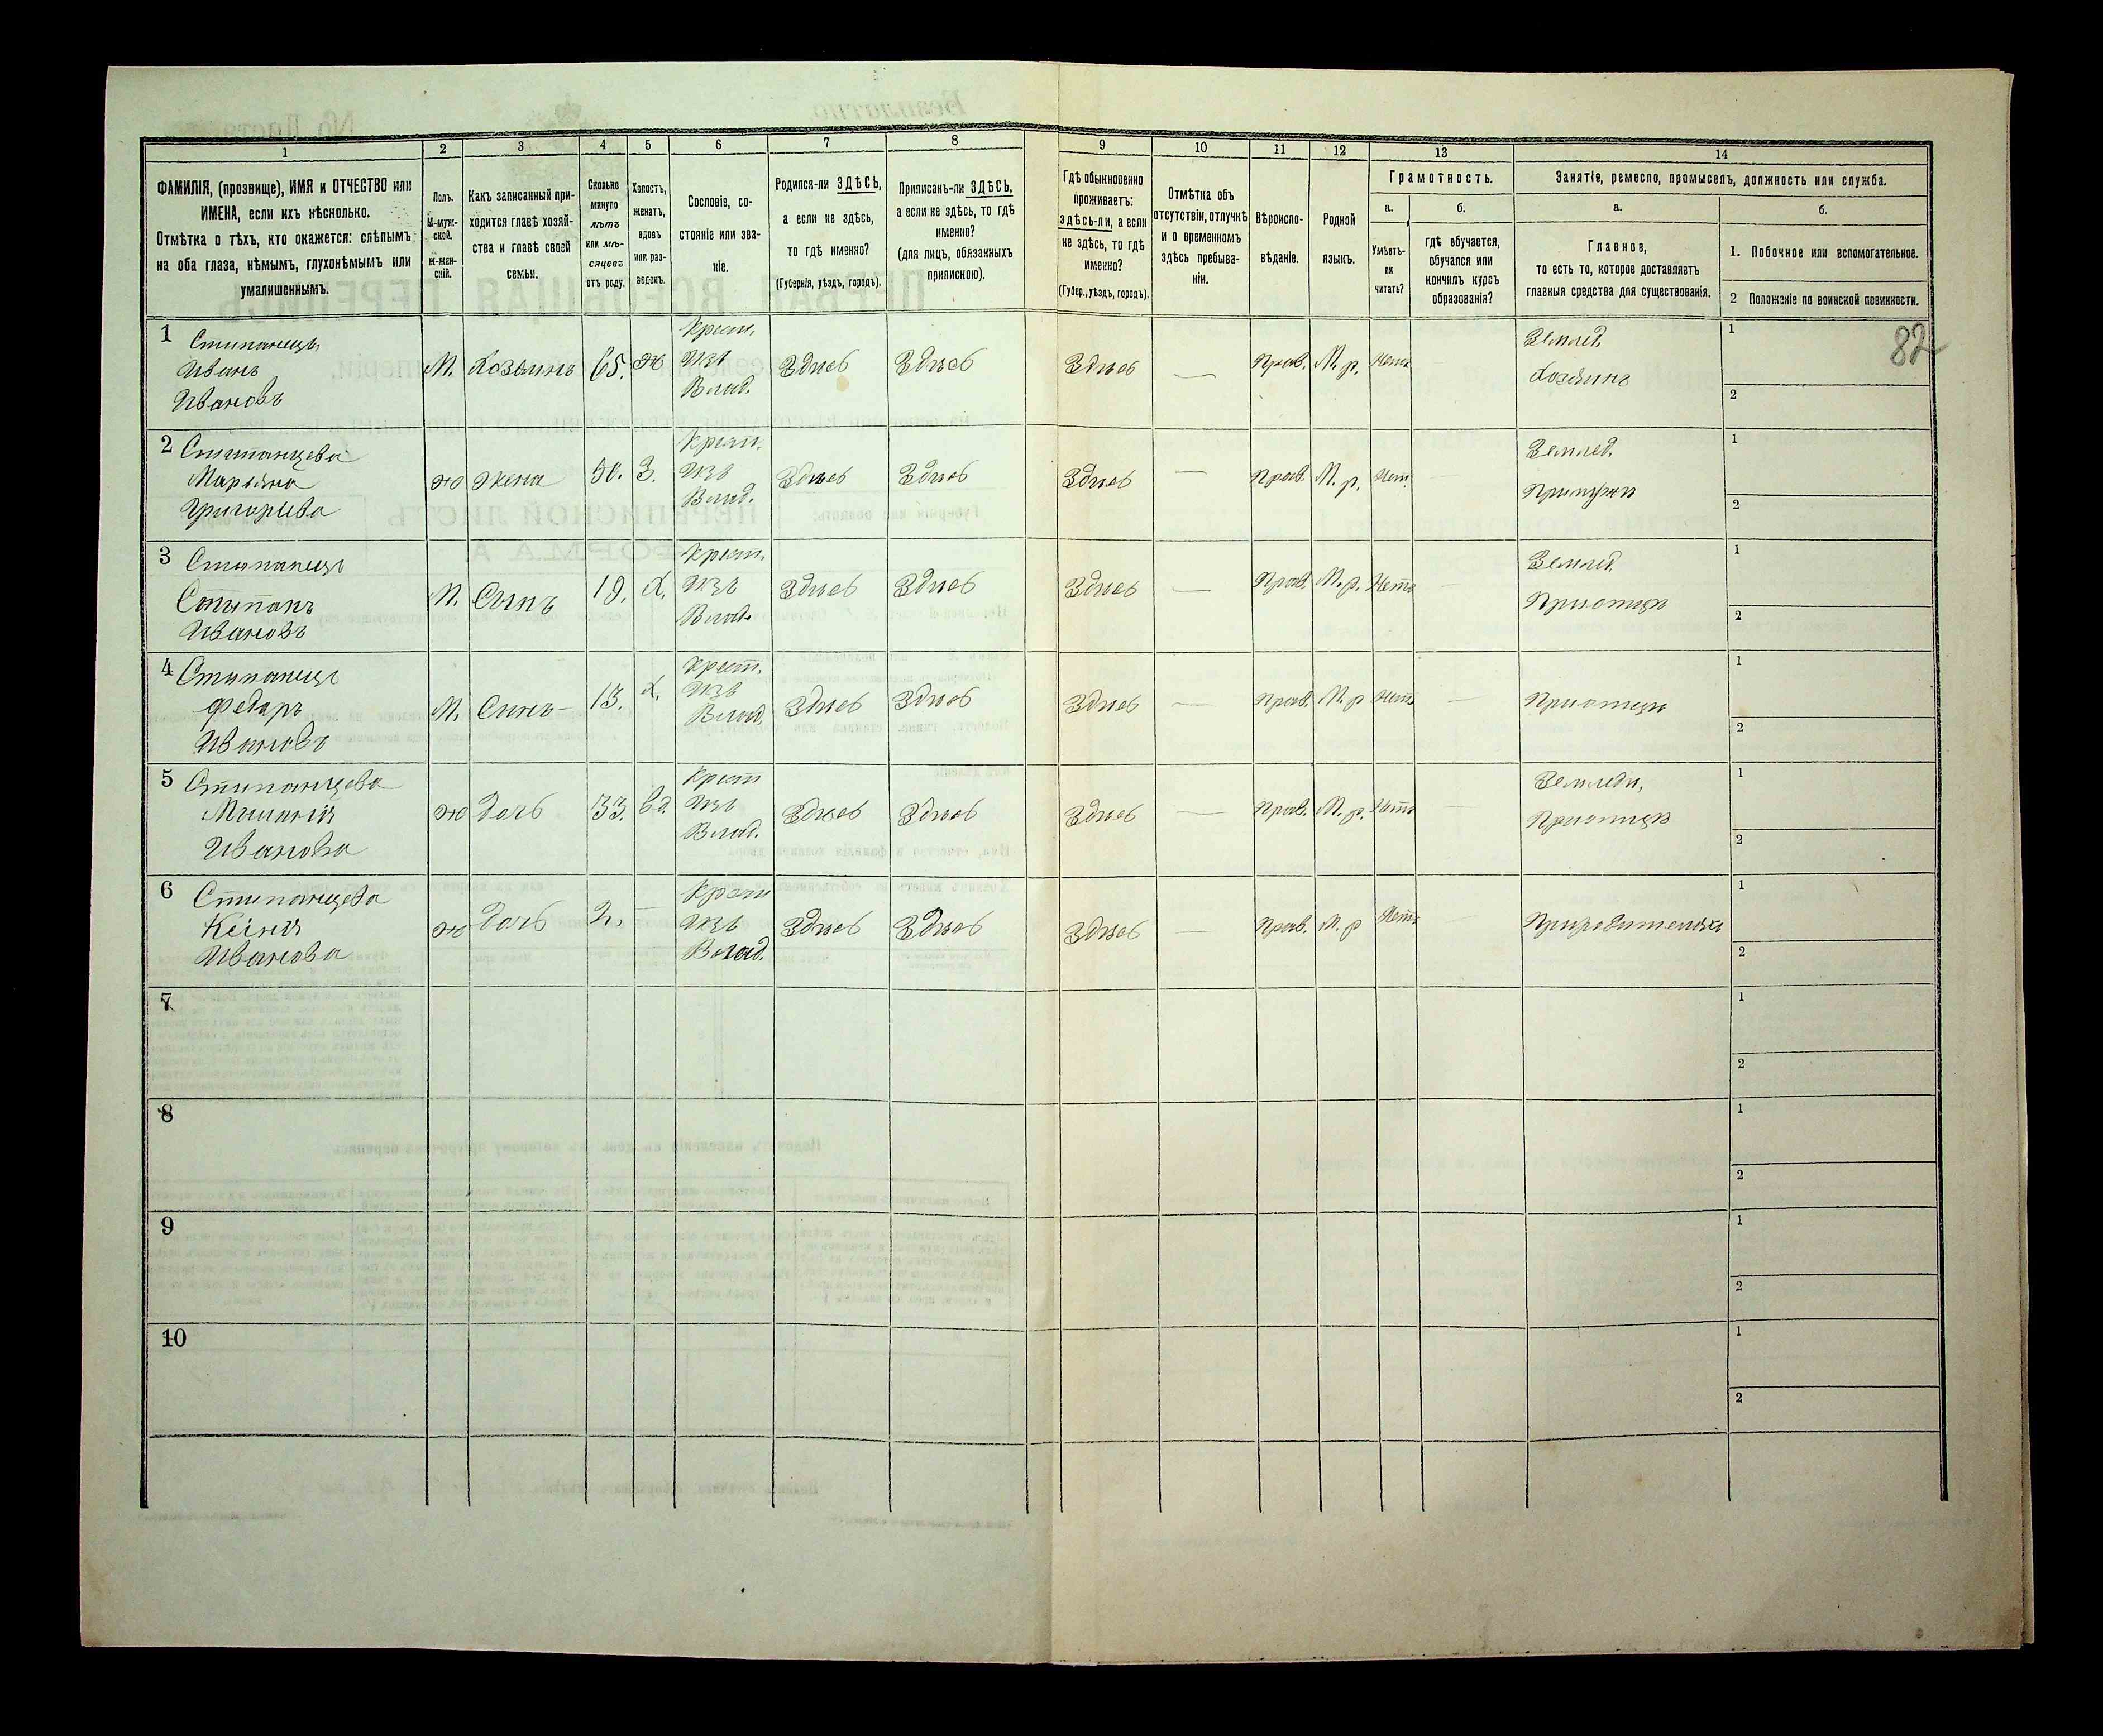 1 2 3 4 5 6 7 8 9 10 11 12 13 14
ФАМИЛІЯ, (прозвище), ИМЯ и ОТЧЕСТВО или
ИМЕНА, если ихъ нѣсколько.
Отмѣтка о тѣхъ, кто окажется: слѣпымъ
на оба глаза, нѣмымъ, глухонѣмымъ или
умалишеннымъ.
Полъ.
М-муж-
ской.
Ж-жен-
скій.
Какъ записанный при-
ходится главѣ хозяй-
ства и главѣ своей
семьи.
Сколько
минуло
лѣтъ
или мѣ-
сяцевъ
отъ роду.
Холостъ,
женатъ,
вдовъ
или раз-
веденъ.
Сословіе, со-
стояніе или зва-
ніе.
Родился-ли ЗДѢСЬ,
а если не здѣсь,
то гдѣ именно?
(Губернія, уѣздъ, городъ).
Приписанъ-ли ЗДѢСЬ,
а если не здѣсь, то гдѣ
именно?
(для лицъ, обязанныхъ
припискою).
Гдѣ обыкновенно
проживаетъ:
здѣсь-ли, а если
не здѣсь, то гдѣ
именно?
(Губер., уѣздъ, городъ).
Отмѣтка объ
отсутствіи, отлучкѣ
и о временномъ
здѣсь пребыва-
ніи.
Вѣроиспо-
вѣданіе.
Родной
языкъ.
Грамотность.
а.
Умѣетъ-
ли
читать?
б.
гдѣ обучается,
обучался или
кончилъ курсъ
образованія?
Занятіе, ремесло, промыселъ, должность или служба.
а.
Главное,
то есть то, которое доставляетъ
главныя средства для существованія.
б.
1. Побочное или вспомогательное.
2 Положеніе по воинской повинности.
82
1 Стипанецъ
Иванъ
Ивановъ
М. Хозяинъ 65. Ж
Крест.
Изъ
Влад.
Здѣсь Здѣсь Здѣсь — Прав. М. р. Нетъ
Землед.
Хозяинъ
1
2
2 Стипанцева
Марьяна
Григорьева
Ж Жена 50. З.
Крест.
Изъ
Влад.
Здѣсь Здѣсь Здѣсь — Прав. М. р. Нет. —
Землед.
При мужи
1
2
3 Стипанецъ
Стыпанъ
Ивановъ
М. Сынъ 19. Х.
Крест.
Изъ
Влад.
Здѣсь Здѣсь Здѣсь — Прав. М. р. Нетъ —
Землед.
При отци
1
2
4 Стипанецъ
Федоръ
Ивановъ
М. Сынъ 13. Х.
Крест.
Изъ
Влад.
Здѣсь Здѣсь Здѣсь — Прав. М. р Нетъ —
При отци
1
2
5 Стипанцева
Ивановa
Ж Дочь 33. Вд.
Крест
Изъ
Влад.
Здѣсь Здѣсь Здѣсь — Прав. М. р. Нетъ —
Земледи,
При отци
1
2
6 Стипанцева
Ксінія
Иванова
Ж Дочь 2. —
Крест
Изъ
Влад.
Здѣсь Здѣсь Здѣсь — Прав. М. р Нетъ —
При родителяхъ
1
2
7
1
2
8
1
2
9
1
2
10
1
2